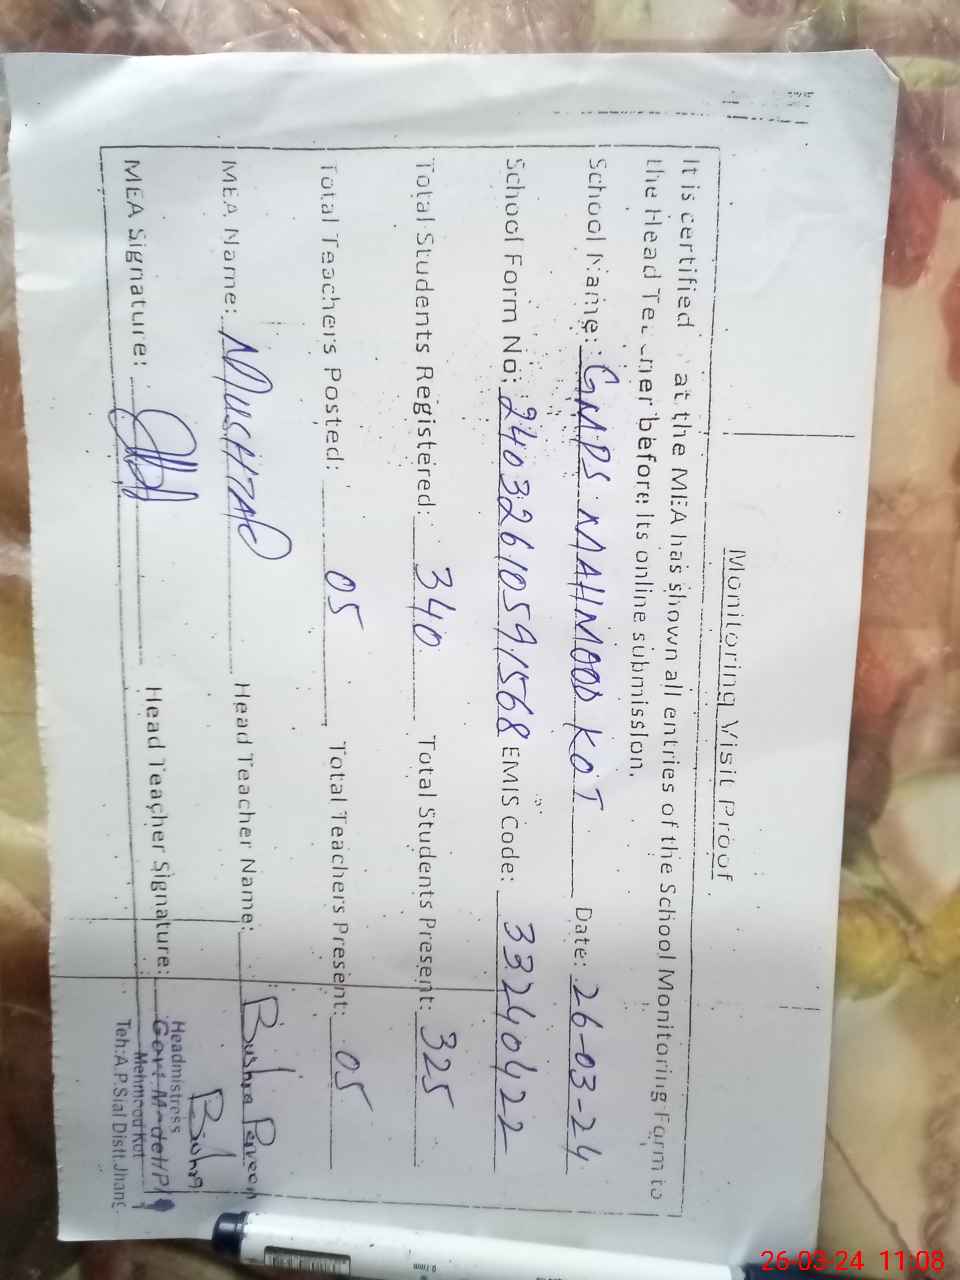 Monitoring Visit Proof
It is certified at the MEA has shown all entries of the School Monitoring Form to
the Head Teacher before its online submission.
School Name: GMPS MAHMOOD KOT Date: 26-03-24
School Form No: 24032610591568 EMIS Code: 33240422
Total Students Registered: 340 Total Students Present: 325
Total Teachers Posted: 05 Total Teachers Present: 05
MEA Name: MUSHTAQ Head Teacher Name: Bushra Parveen
MEA Signature: Head Teacher Signature: Bushra
Headmistress
Govt: Model P/
Mehmood Kot
Teh: A.P. Sial Distt. Jhang
0.7mm
26-03-24 11:08